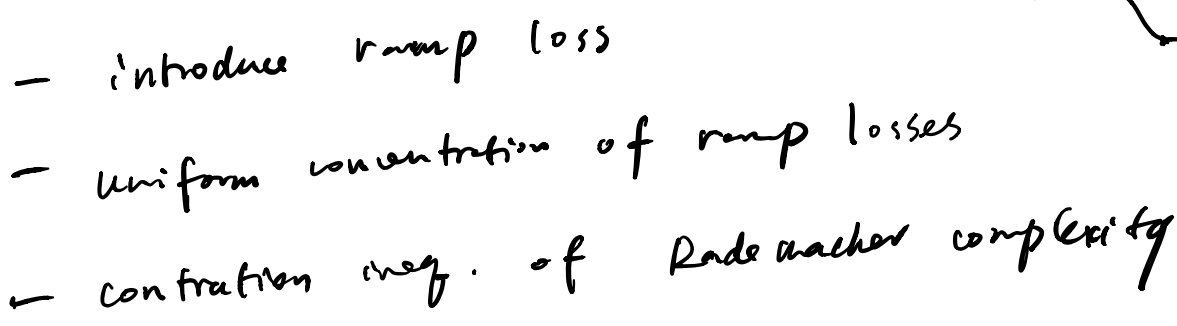 - introduce ramp loss
- uniform concentration of ramp losses
- contration ineq. of Rademacher complexity